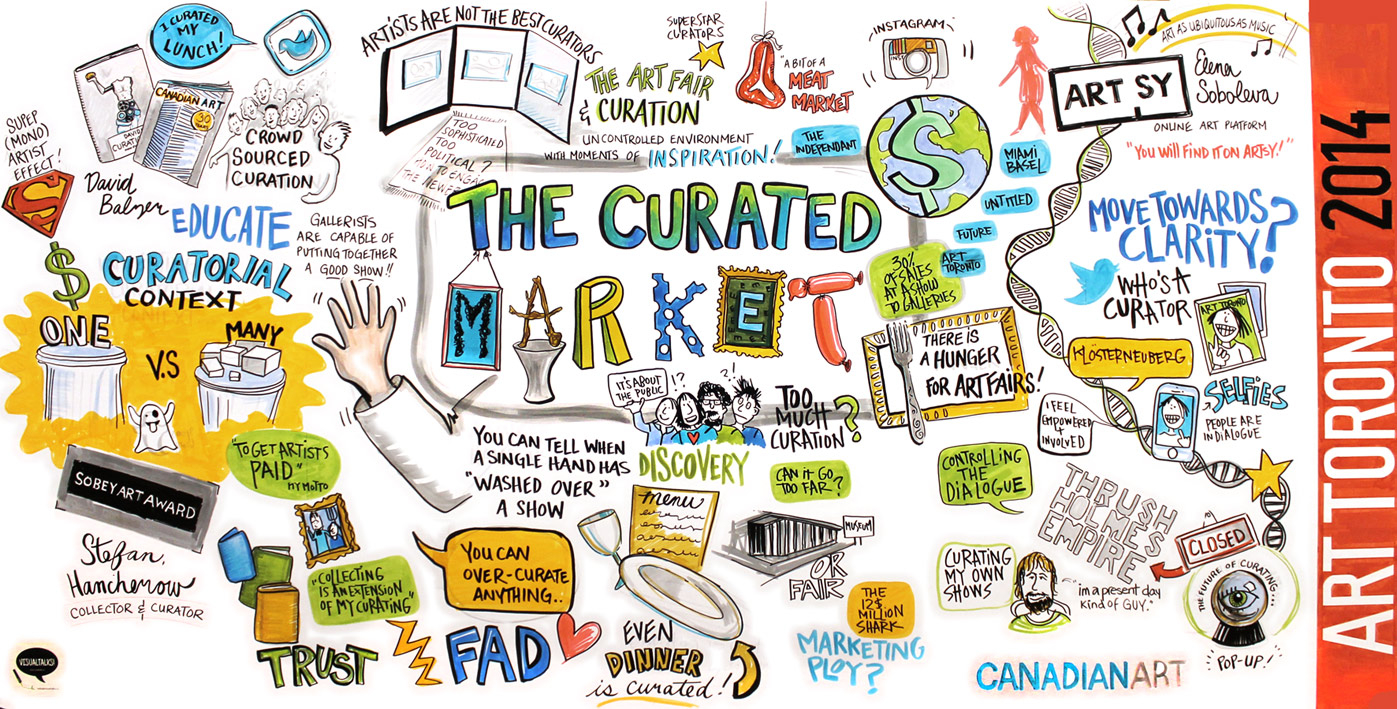 I CURATED
MY
LUNCH!
SUPER
(MONO)
ARTIST
EFFECT!
S
DAVID
CANADIAN ART
30
YEARS
CROWD
SOURCED
CURATION
David
Balzer
EDUCATE
GALLERISTS
ARE CAPABLE OF
PUTTING TOGETHER
A GOOD SHOW!!
$
CURATORIAL
CONTEXT
ONE
V.S
MANY
SOBEY ART AWARD
Stefan
Hancherow
COLLECTOR & CURATOR
VISUALTALKS!
"TO GET ARTISTS
PAID"
MY MOTTO
"COLLECTING
IS AN EXTENSION
OF MY CURATING"
TRUST
ARTISTS ARE NOT THE BEST CURATORS
TOO
SOPHISTICATED
TOO
POLITICAL?
SUPERSTAR
CURATORS
THE ART FAIR
& CURATION
"A BIT OF A
MEAT
MARKET
UNCONTROLLED ENVIRONMENT
WITH MOMENTS OF INSPIRATION!
THE CURATED
MARKET
YOU CAN TELL WHEN
A SINGLE HAND HAS
"WASHED OVER"
A SHOW
IT'S ABOUT
THE PUBLIC
!?
?!
DISCOVERY
TOO
MUCH
CURATION?
CAN IT GO
TOO FAR?
YOU CAN
OVER-CURATE
ANYTHING..
FAD
menu
EVEN
DINNER
is curated!
MUSEUM
OR
FAIR
THE
12$
MILLION
SHARK
MARKETING
PLOY?
INSTAGRAM
$
THE
INDEPENDANT
MIAMI
BASEL
UNTITLED
FUTURE
ART
TORONTO
30%
OF SALES
AT A SHOW
TO GALLERIES
THERE IS
A HUNGER
FOR ART FAIRS!
ART AS UBIQUITOUS AS MUSIC
ARTSY
Elena
Soboleva
ONLINE ART PLATFORM
"YOU WILL FIND IT ON ARTSY!"
MOVE TOWARDS
CLARITY?
WHO'S A
CURATOR
ART TORONTO
KLÖSTERNEUBERG
SELFIES
PEOPLE ARE
IN DIALOGUE
I FEEL
EMPOWERED &
INVOLVED
CONTROLLING
THE
DIALOGUE
THRUSH
HOLMES
EMPIRE
CLOSED
CURATING
MY OWN
SHOWS
"im a present day
kind of GUY."
THE FUTURE OF CURATING...
POP-UP!
CANADIANART
ART TORONTO 2014